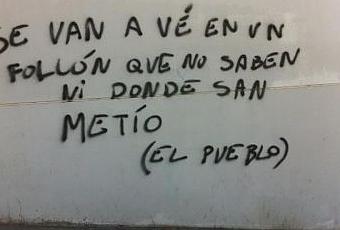 SE VAN A VÉ EN UN
FOLLÓN QUE NO SABEN
NI DONDE SAN
METÍO
(EL PUEBLO)